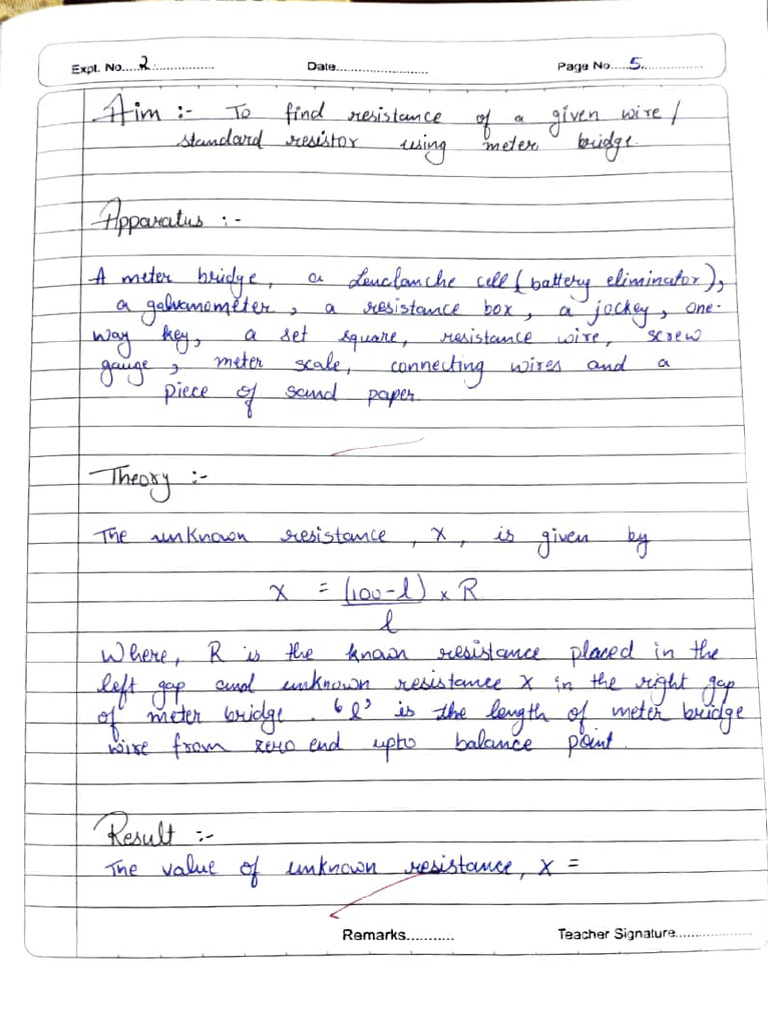 Expt. No.....2................
Date...........................
Page No.....5.................
Aim :- To find resistance of a given wire /
standard resistor using meter bridge.
Apparatus :-
A meter bridge, a Lenclanche cell (battery eliminator),
a galvanometer, a resistance box, a jockey, one-
way key, a set square, resistance wire, screw
gauge, meter scale, connecting wires and a
piece of sand paper.
Theory :-
The unknown resistance, X, is given by
X = (100-l) x R
l
Where, R is the known resistance placed in the
left gap and unknown resistance X in the right gap
of meter bridge. 'l' is the length of meter bridge
wire from zero end upto balance point.
Result :-
The value of unknown resistance, X =
Remarks...........
Teacher Signature..................